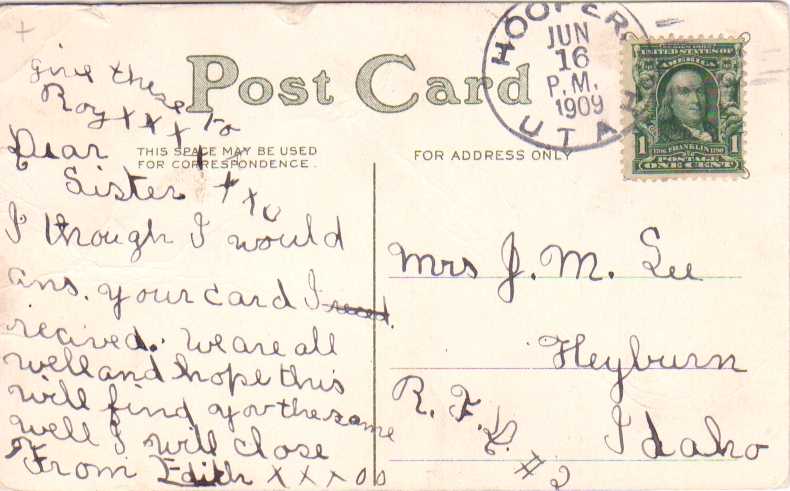 Post Card
THIS SPACE MAY BE USED
FOR CORRESPONDENCE.
FOR ADDRESS ONLY
HOOPER,
JUN
16
P.M.
1909
UTAH
SERIES 1902
UNITED STATES OF
AMERICA
1 1
1706 FRANKLIN 1790
POSTAGE
ONE CENT
give these to
Roy x x x x x x x o
Dear
Sister
I though I would
ans. your card I reced.
recived. We are all
well and hope this
will find you the same
well I will close
From Edith x x x o o
Mrs J. M. Lee
Heyburn
R. F. D. #2 Idaho